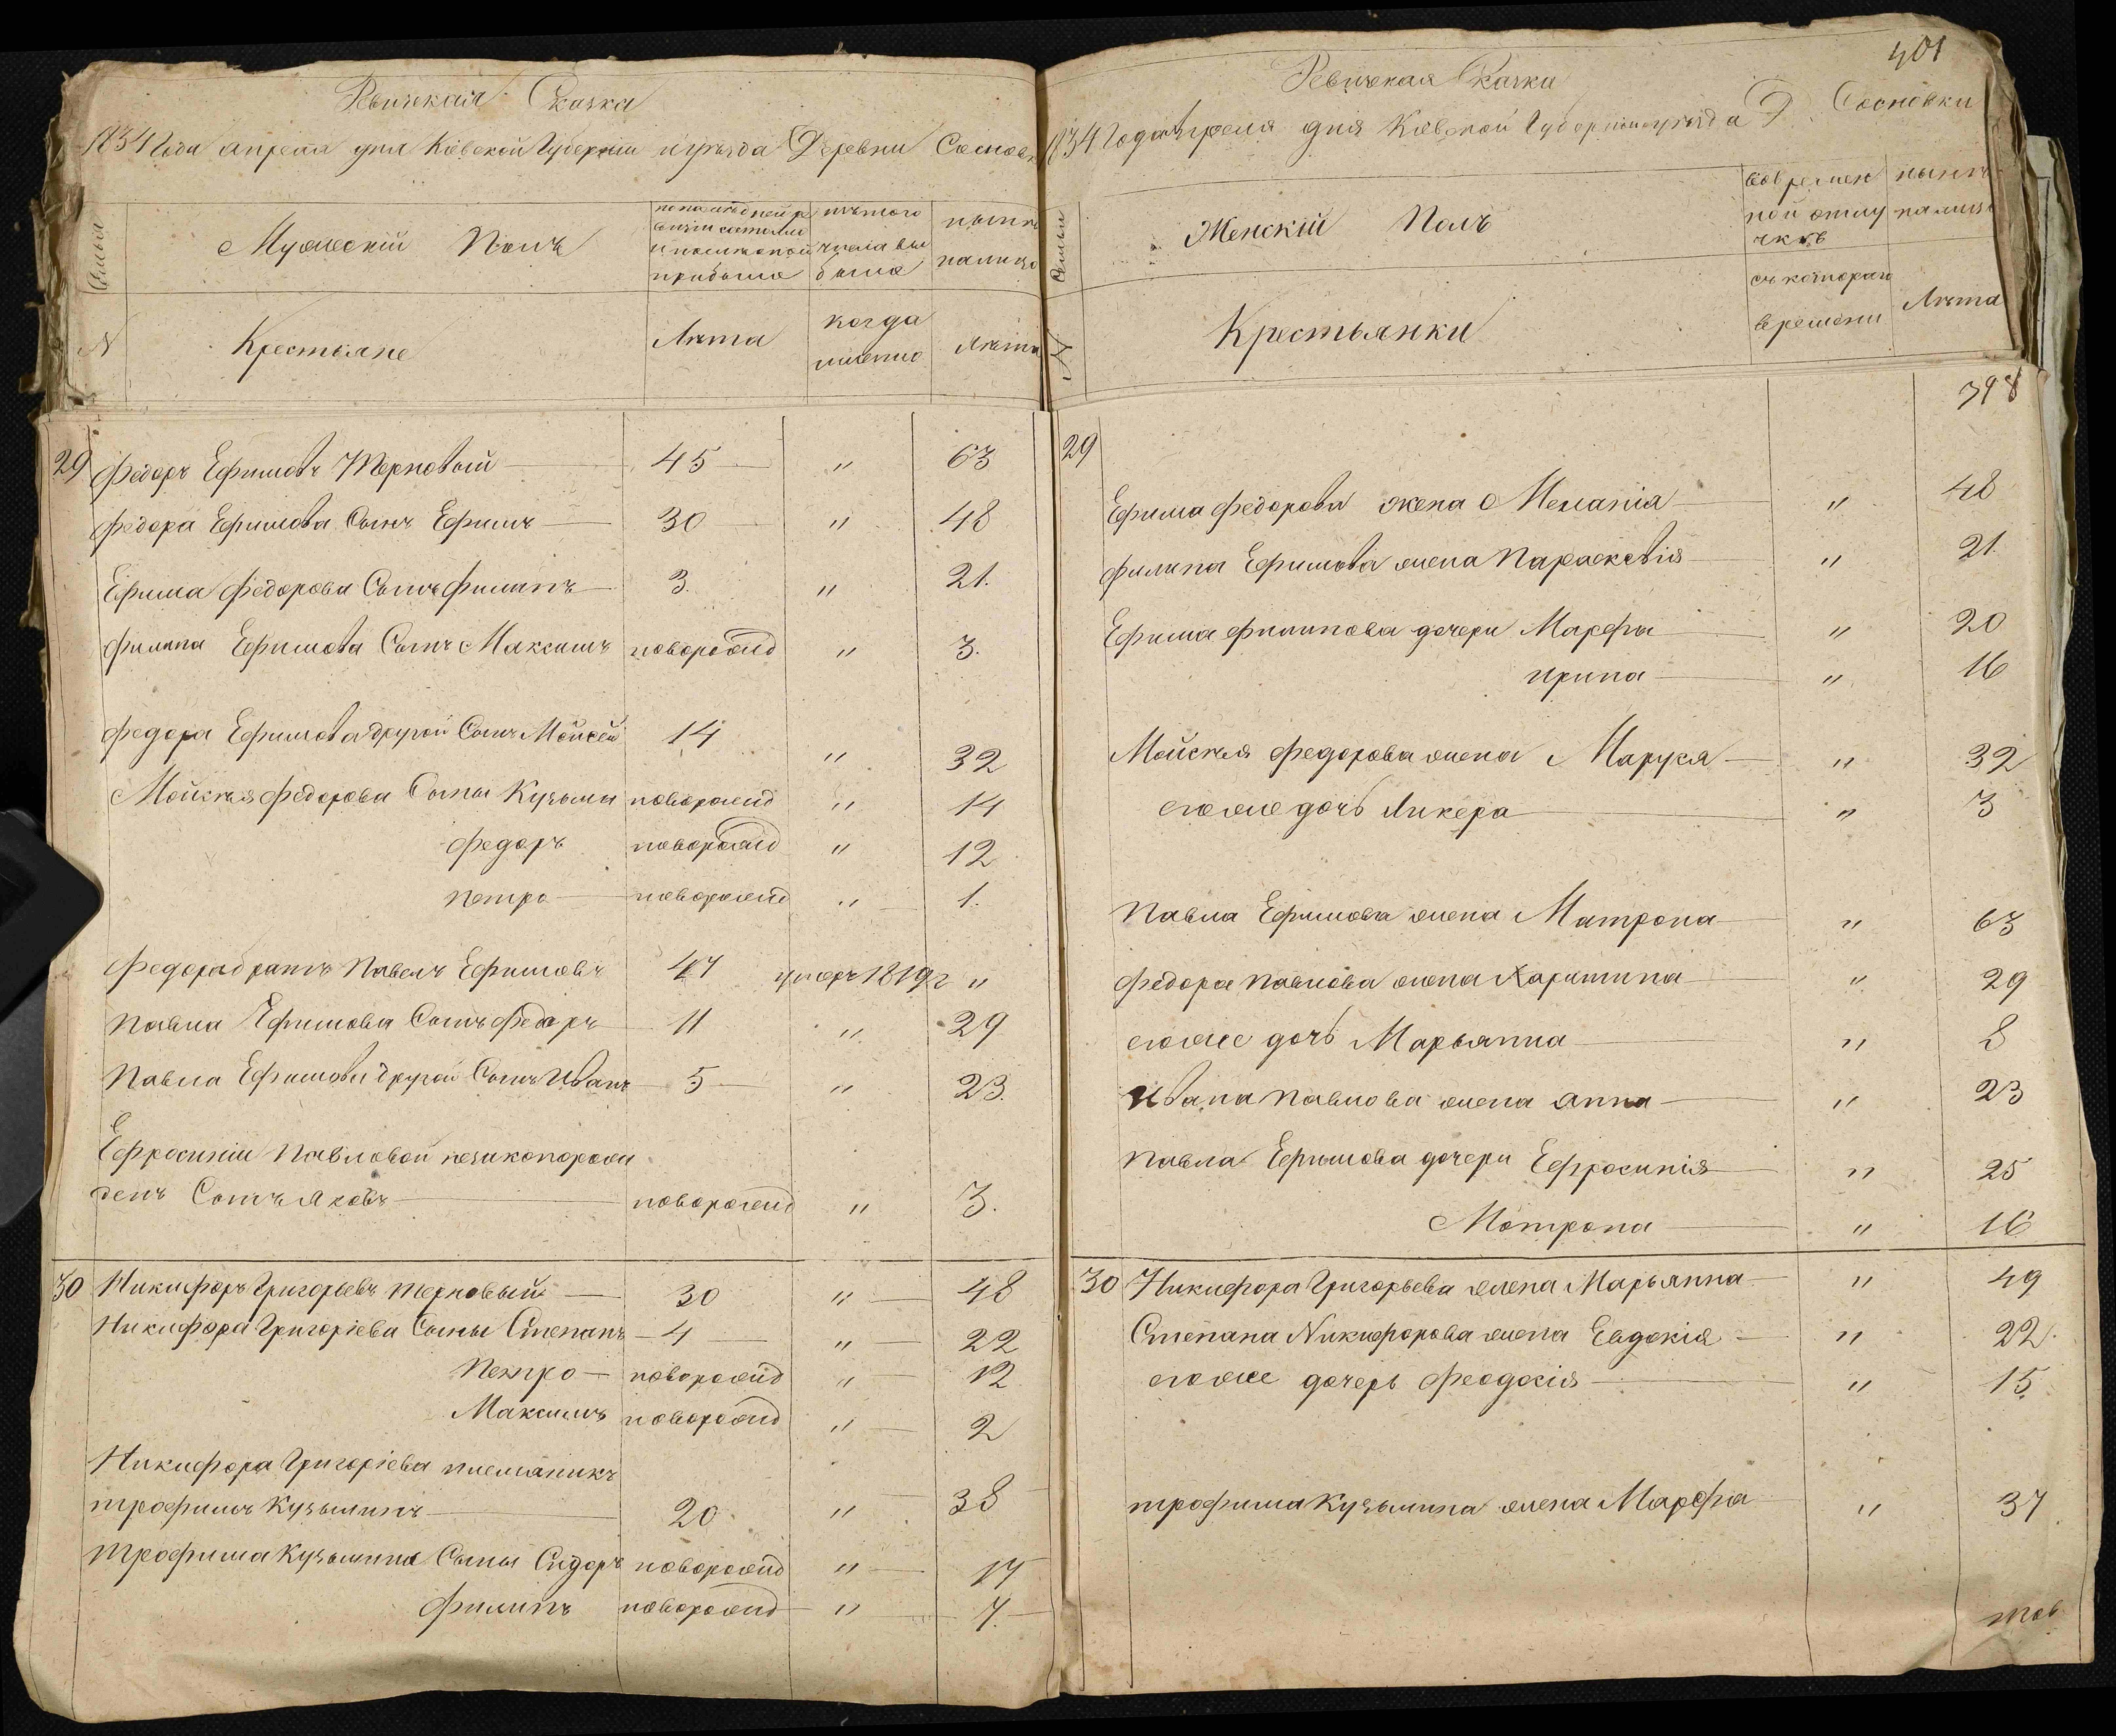 Ревизская Сказка
1834 Года апреля дня Кіевской Губерніи и уезда Деревни Сосновк
Семьи
Мужескій Полъ
по последней ре
визіи состояло
и после оной
прибыло
изъ того
числа вы
было
ныне
налицо
N
Крестьяне
Лѣта
когда
имянно
Лѣта
29 Федоръ Ефимовъ Терновый 45 " 63
Федора Ефимова Сынъ Ефимъ 30 " 48
Ефима Федорова Сынъ Филипъ 3. " 21.
Филипа Ефимова Сынъ Максимъ новорожд " 3.
Федора Ефимова другой Сынъ Мойсей 14 " 32
Мойсѣя Федорова Сыны Кузьма новорожд " 14
Федоръ новорожд " 12
Петро новорожд " 1.
Федора братъ Павелъ Ефимовъ 47 умеръ 1819 г "
Павла Ефимова Сынъ Федоръ 11 " 29
Павла Ефимова другой Сынъ Иванъ 5 " 23.
Ефросиніи Павловой незаконорож
денъ Сынъ Яковъ новорожд " 3.
30 Никифоръ Григорьевъ Терновый 30 " 48
Никифора Григоріева Сыны Степанъ 4 " 22
Петро новорожд " 12
Максимъ новорожд " 2
Никифора Григоріева племяникъ
трофимъ Кузьминъ 20 " 38
Трофима Кузьмина Сыны Сидоръ новорожд " 17
Филипъ новорожд " 7.
401
Ревизская Сказка
1834 Года апреля дня Кіевской Губерніи и уезда Д. Сосновки
Семьи
Женскій Полъ
во времен
ной отлу
чкѣ
ныне
налицо
N
Крестьянки
съ котораго
времени
Лѣта
398
29
Ефима Федорова жена Меланія " 48
Филипа Ефимова жена Параскевія " 21.
Ефима Филипова дочери Марфа " 20
Ирина " 16
Мойсѣя Федорова жена Маруся " 32
его же дочь Ликера " 3
Павла Ефимова жена Матрона " 63
Федора Павлова жена Харитина " 29
его же дочь Марьянна " 8
Ивана Павлова жена Анна " 23
Павла Ефимова дочери Ефросинія " 25
Мотрона " 16
30 Никифора Григорьева жена Марьянна " 49
Степана Никифорова жена Евдокія " 22.
его же дочерь Феодосія " 15
трофима Кузьмина жена Марфа " 37